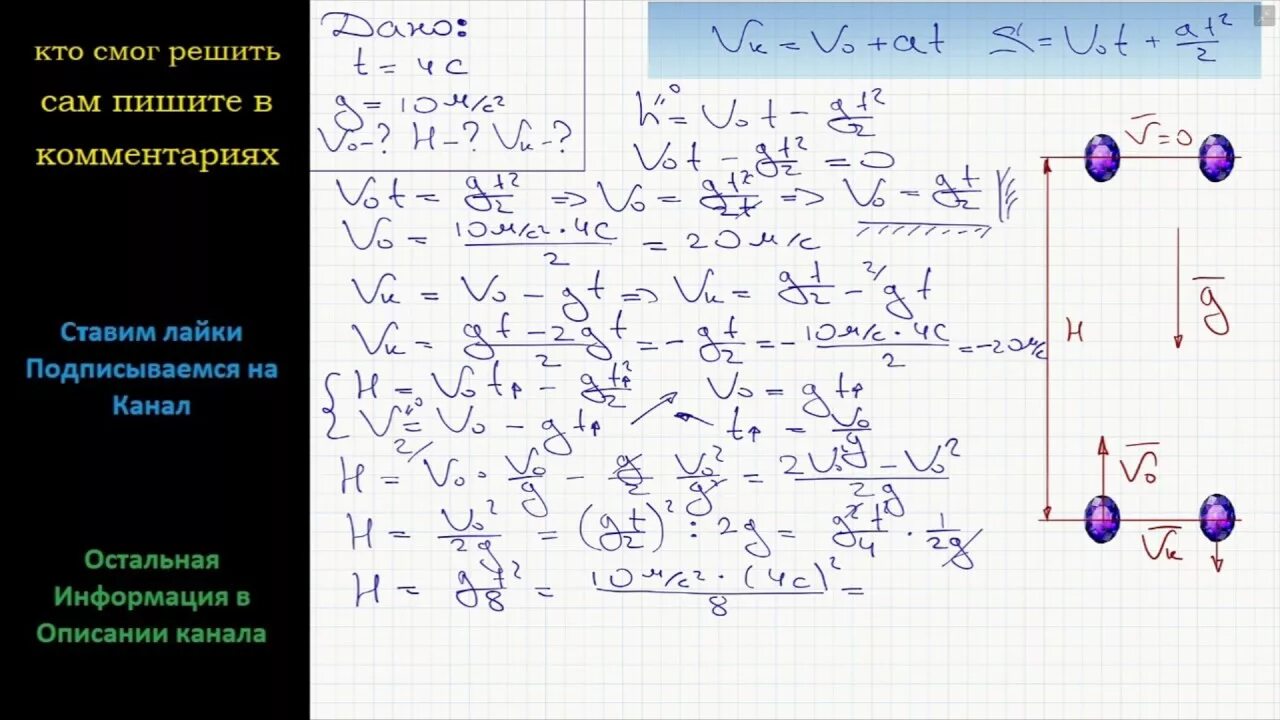 кто смог решить
сам пишите в
комментариях
Ставим лайки
Подписываемся на
Канал
Остальная
Информация в
Описании канала
Дано:
t = 4с
g = 10 м/с²
V₀-? H-? Vк-?
Vк = V₀ + at S = V₀t + at²/2
h = 0 = V₀t - gt²/2
V₀t - gt²/2 = 0
V₀t = gt²/2 => V₀ = gt²/2t => V₀ = gt/2
V₀ = 10 м/с² · 4с / 2 = 20 м/с
Vк = V₀ - gt => Vк = gt/2 - ²/ gt
Vк = gt - 2gt / 2 = - gt/2 = - 10 м/с · 4с / 2 = -20 м/с
{ H = V₀t↑ - gt↑²/2 V₀ = gt↑
V = 0 = V₀ - gt↑ t↑ = V₀/g
H = ²/ V₀ · V₀/g - g/2 V₀²/g² = 2V₀² - V₀² / 2g
H = V₀²/2g = (gt/2)² : 2g = g²t²/4 · 1/2g
H = gt²/8 = 10 м/с² · (4с)² / 8 =
V̅=0
g̅
H
V̅₀
V̅к